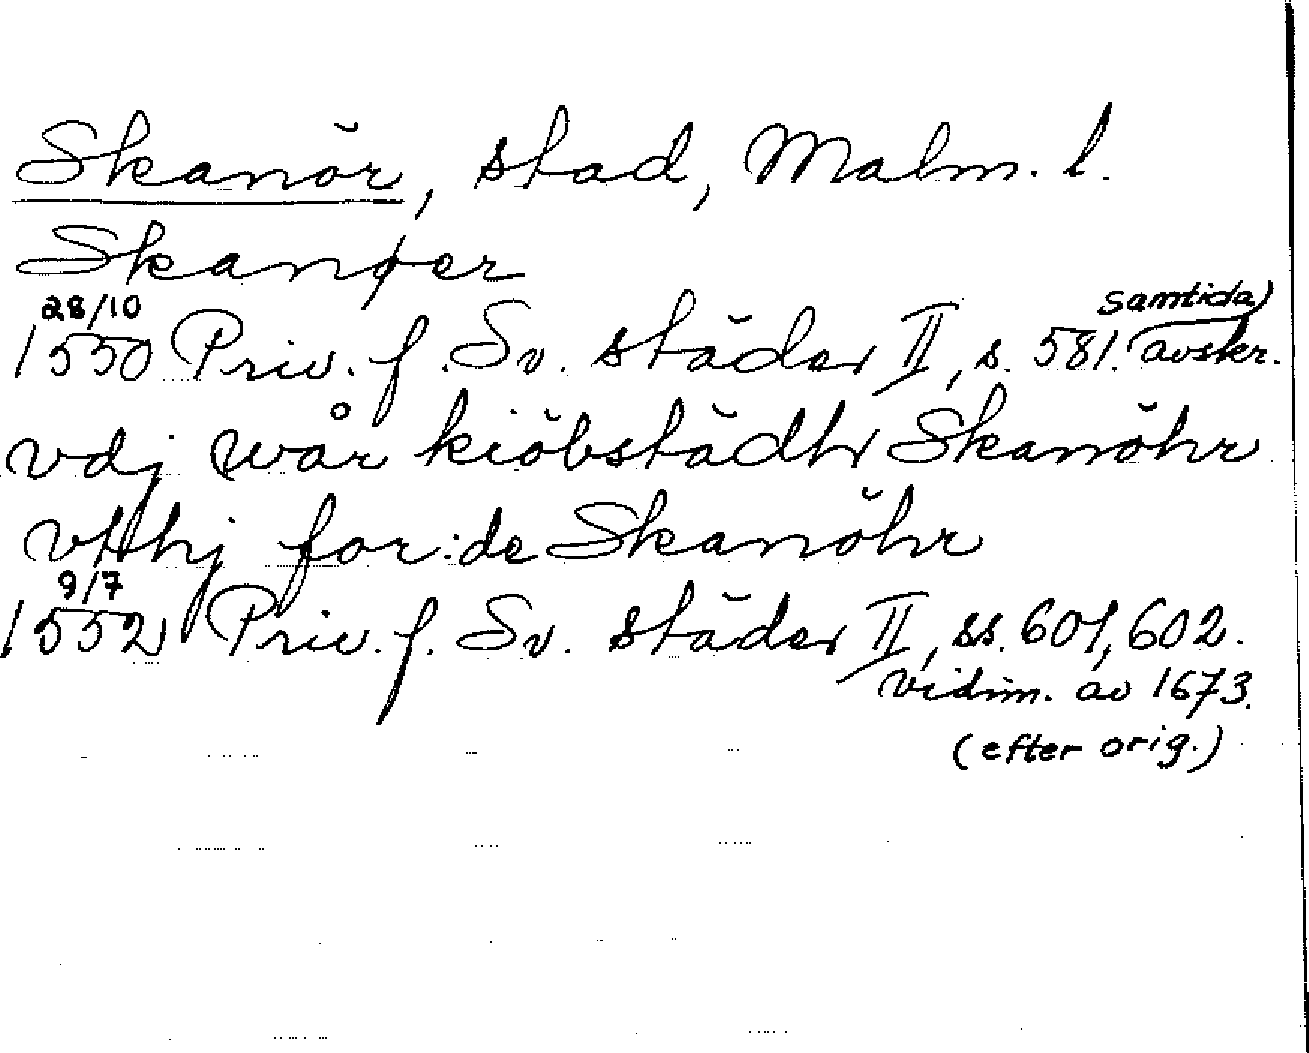 Skanör, stad, Malm. l.
Skanøer
28/10 samtida)
1550 Priv. f. Sv. städer II, s. 581. avskr.
vdj wår kiöbstädhr Skanöhr
vthj for:de Skanöhr
9/7
1552 Priv. f. Sv. städer II, ss. 601, 602.
vidim. av 1673.
(efter orig.)